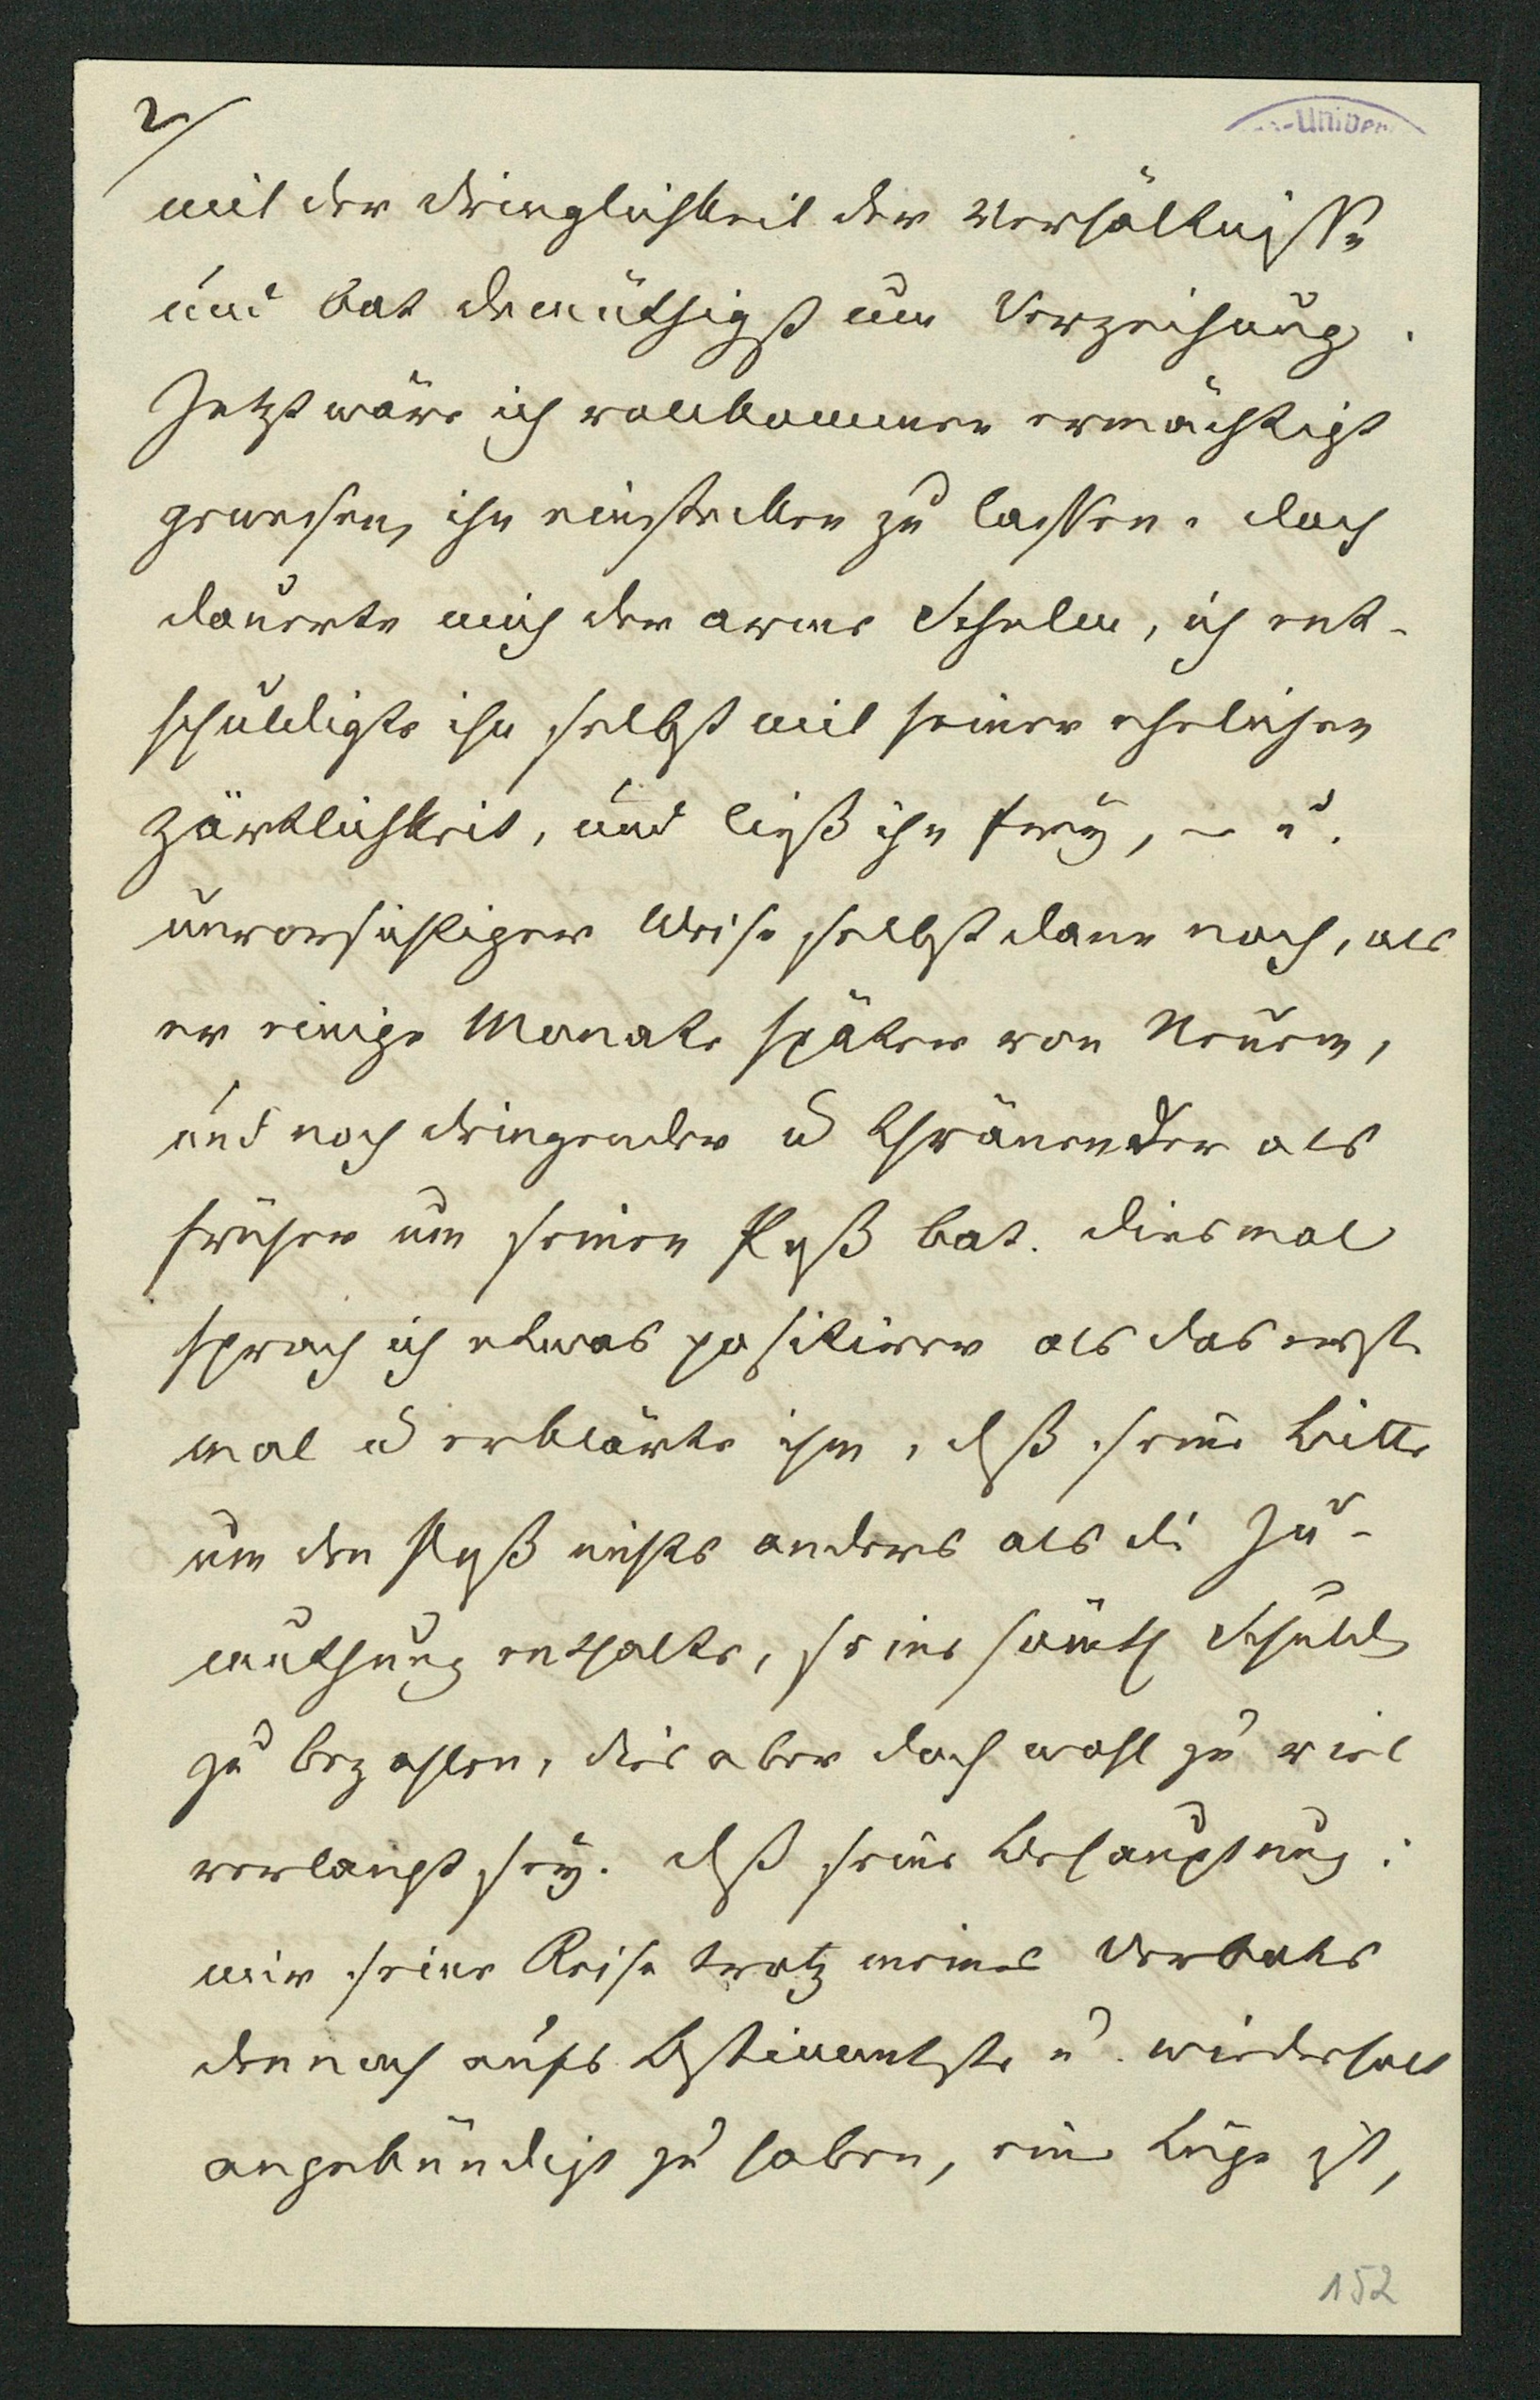 2/
-Univer
mit der Dringlichkeit der Verhältnisse
und bat demüthigst um Verzeihung.
Jetzt wäre ich vollkommen ermächtigt
gewesen, ihn einstecken zu lassen. doch
dauerte mich der arme Schelm, ich ent-
schuldigte ihn selbst mit seiner ehelichen
Zärtlichkeit, und ließ ihn frey, – u.
unvorsichtiger Weise selbst dann noch, als
er einige Monate später von Neuem,
und noch dringender u thränender als
früher um seinen Paß bat. diesmal
sprach ich etwas positiver als das erste
mal u erklärte ihm, daß seine Bitte
um den Paß nichts anders als die Zu-
muthung enthalte, seine sämtl Schuld
zu bezahlen, dies aber doch wohl zu viel
verlangt sey. daß seine Behauptung:
mir seine Reise trotz meines Verbots
dennoch aufs Bestimmteste u. wiederholt
angekündigt zu haben, eine Lüge ist,
152